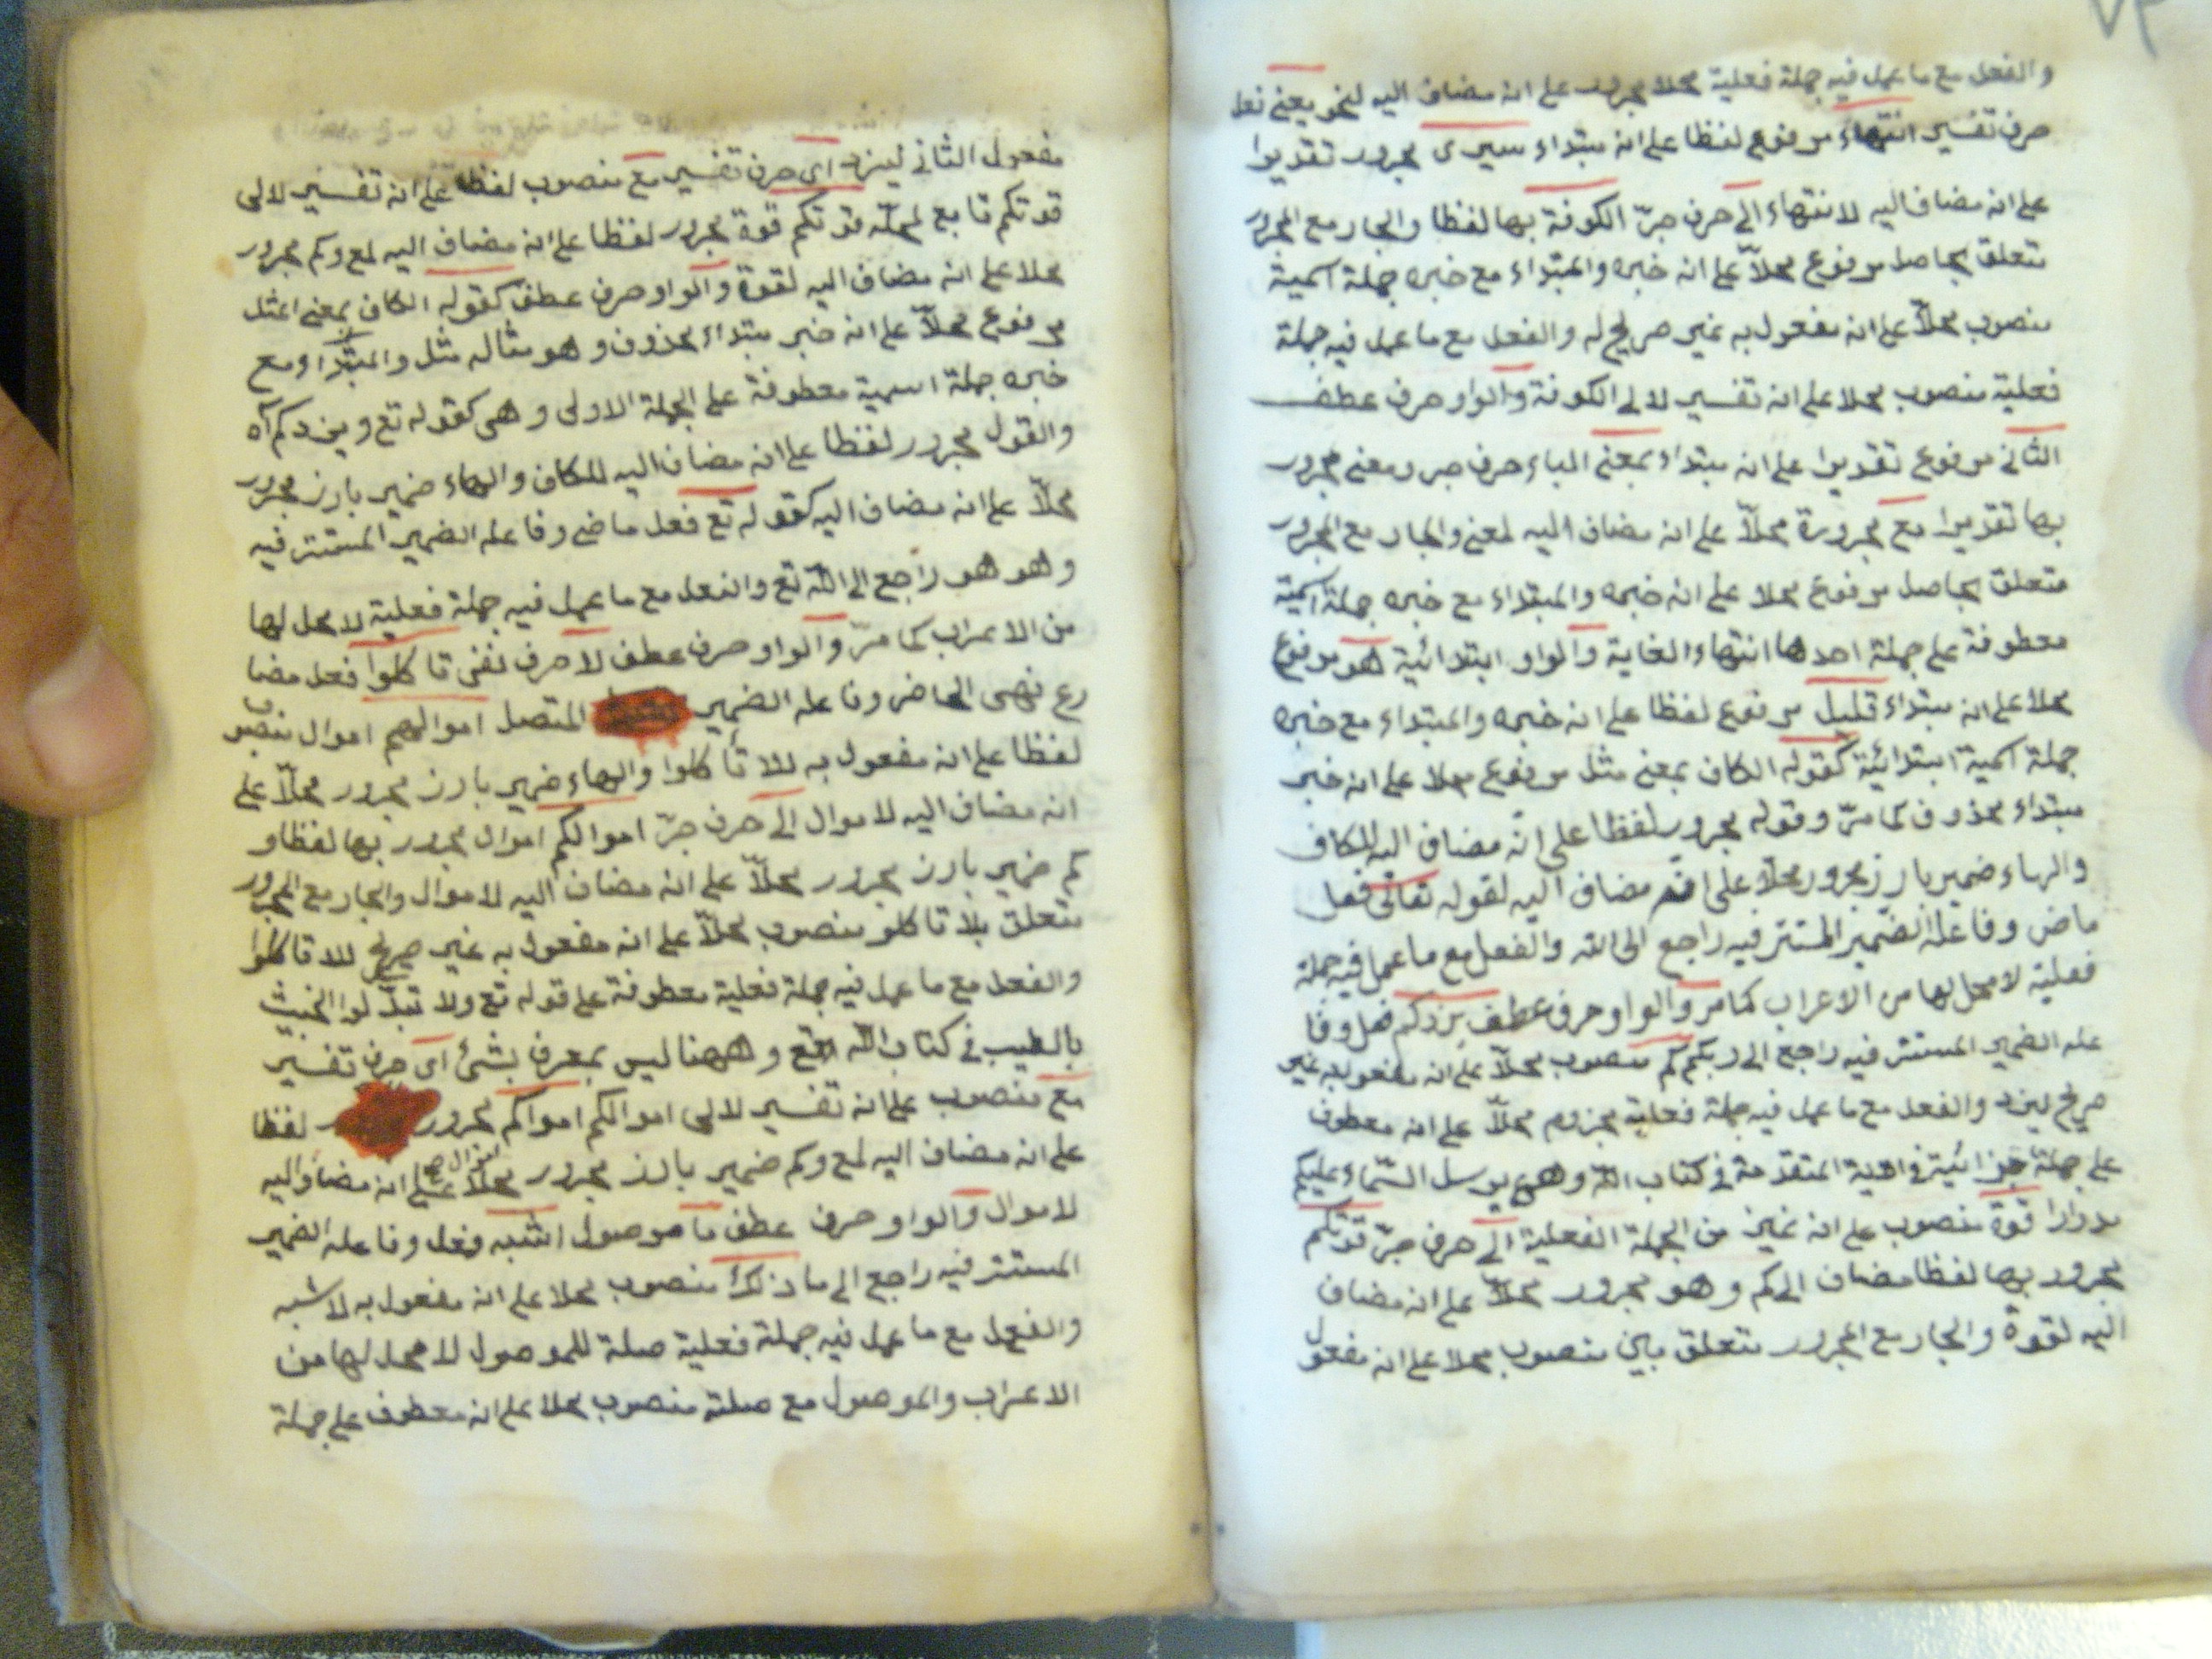 ٧٣
والفعل مع ما عمل فيه جملة فعلية محلا مجرور على انه مضاف اليه لنحو يعنى فعل
حرف تفسير انتهاء مرفوع لفظا على انه مبتداء سيرى مجرور تقديرا
على انه مضاف اليه لانتهاء الى حرف جرّ الكوفة بها لفظا والجار مع المجرور
متعلق بحاصل مرفوع محلاّ على انه خبره والمبتداء مع خبره جملة اسمية
منصوب محلاّ على انه مفعول به غير صريح له والفعل مع ما عمل فيه جملة
فعلية منصوب محلا على انه تفسير لالى الكوفة والواو حرف عطف
الثانى مرفوع تقديرا على انه مبتداء بمعنى الباء حرف جر ومعنى مجرور
بها تقديرا مع مجرورة محلاّ على انه مضاف اليه لمعنى والجار مع المجرور
متعلق بحاصل مرفوع محلا على انه خبره والمبتداء مع خبره جملة اسمية
معطوفة على جملة احدها انتهاء الغاية والواو ابتدائية هو مرفوع
محلا على انه مبتداء قليل مرفوع لفظا على انه خبره والمبتداء مع خبره
جملة اسمية ابتدائية كقوله الكاف بمعنى مثل مرفوع محلا على انه خبر
مبتداء محذوف كما مرّ وقوله مجرور لفظا على انّه مضاف اليه للكاف
والهاء ضمير بارز مجرور محلا على انه مضاف اليه لقوله تعالى فعل
ماض وفاعله الضمير المستتر فيه راجع الى الله والفعل مع ما عمل فيه جملة
فعلية لا محل لها من الاعراب كما مر والواو حرف عطف يزدكم فعل وفا
عله الضمير المستتر فيه راجع الى ربكم كم منصوب محلاّ على انه مفعول به غير
صريح ليزد والفعل مع ما عمل فيه جملة فعلية مجزوم محلاّ على انه معطوف
على جملة جزائية فى اقية المتقدمة فى كتاب الله وهى يرسل السّماء عليكم
مدرارا قوة منصوب على انه تميز من الجملة الفعلية الى حرف جرّ قوتكم
مجرور بها لفظا مضاف الى كم وهو مجرور محلاّ على انه مضاف
اليه لقوة والجار مع المجرور متعلق بين منصوب محلا على انه مفعول
مفعول الثانى ليزد اى حرف تفسير مع منصوب لفظا على انه تفسير لالى
قوتكم تابع لمحلّه قوتكم قوة مجرور لفظا على انه مضاف اليه لمع وكم مجرور
محلا على انه مضاف اليه لقوة والواو حرف عطف كقوله الكاف بمعنى المثل
مرفوع محلاّ على انه خبر مبتداء محذوف وهو مثاله مثل والمبتداء مع
خبره جملة اسمية معطوفة على الجملة الاولى وهى كقوله تع ويزدكم آه
والقول مجرور لفظا على انه مضاف اليه للكاف والهاء ضمير بارز مجرور
محلاّ على انه مضاف اليه كقوله تع فعل ماضى وفاعله الضمير المستتر فيه
وهو هو راجع الى الله تع والفعل مع ما عمل فيه جملة فعلية لا محل لها
من الاعراب كما مرّ والواو حرف عطف لا حرف لنفى تاكلوا فعل مضا
رع نهى الحاضر وفاعله الضمير المتصل اموالهم اموال منصوب
لفظا على انه مفعول به للا تاكلوا والهاء ضمير بارز مجرور محلاّ على
انه مضاف اليه لاموال الى حرف جرّ اموالكم اموال مجرور بها لفظا و
كم ضمير بارز مجرور محلاّ على انه مضاف اليه لاموال والجار مع المجرور
متعلق بلا تاكلو منصوب محلاّ على انه مفعول به غير صريح للا تاكلوا
والفعل مع ما عمل فيه جملة فعلية معطوفة على قوله تع ولا تبدّلوا الخبيث
بالطيب فى كتاب الله تع وههنا ليس بمعرف بشئ اى حرف تفسير
مع منصوب على انه تفسير لالى اموالكم اموالكم مجرور لفظا
على انه مضاف اليه لمع وكم ضمير بارز مجرور محلاّ على انه مضاف اليه
لاموال والواو حرف عطف ما موصول اشبه وفعل وفاعله الضمير
المستتر فيه راجع الى ما ذلك منصوب محلا على انه مفعول به لاشبه
والفعل مع ما عمل فيه جملة فعلية صلة للموصول لا محل لها من
الاعراب والموصول مع صلته منصوب محلا على انه معطوف على جملة